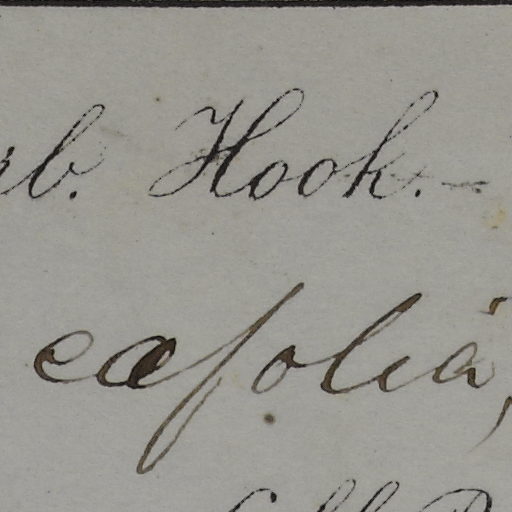 rb. Hook.-
eæfolia,